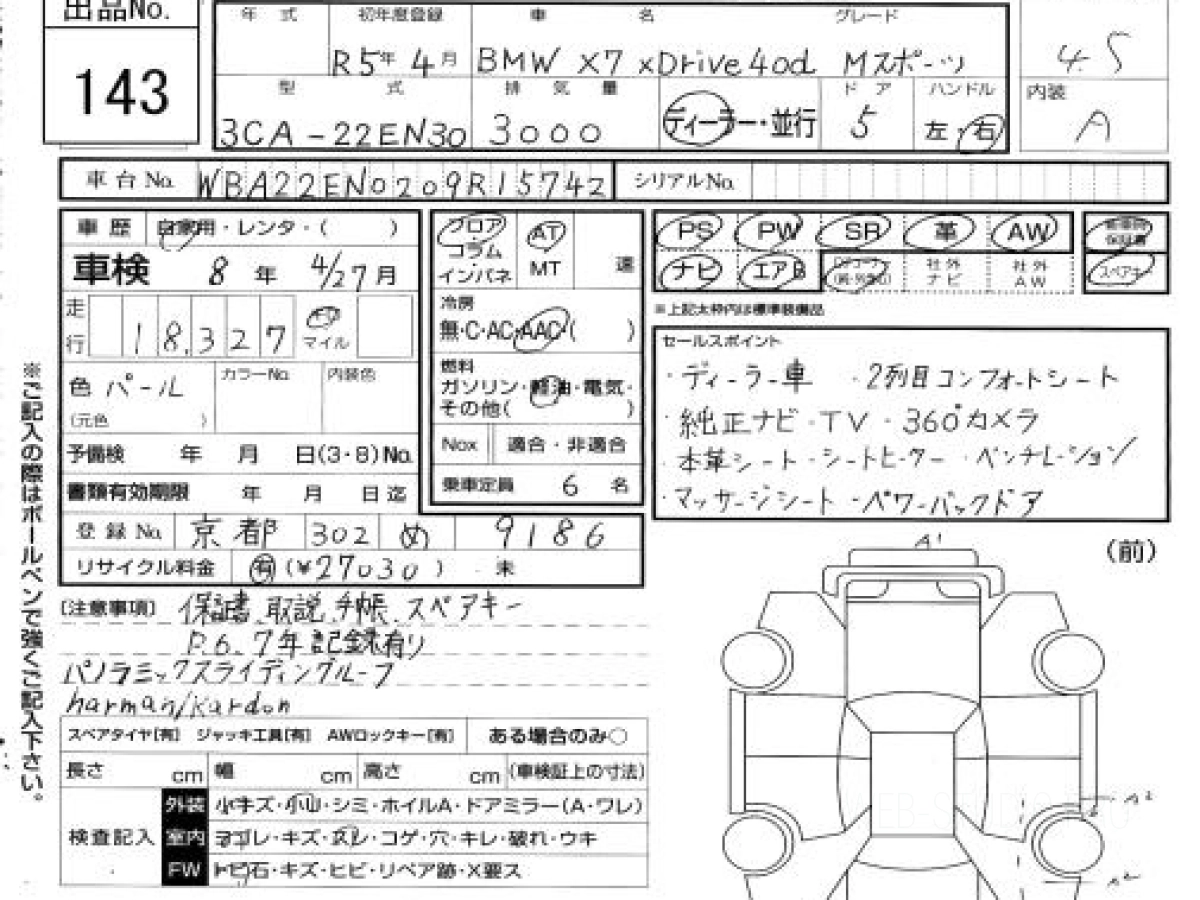 出品No.
143
年式 初年度登録 車名 グレード
R5年4月 BMW X7 xDrive40d Mスポーツ
4.5
型式 排気量 ドア ハンドル 内装
3CA-22EN30 3000 ディーラー・並行 5 左・右 A
車台No. WBA22EN0209R15742 シリアルNo.
車歴 自家用・レンタ・( )
車検 8年 4/27月
走行 18,327 マイル
色 パール カラーNo. 内装色
(元色 )
予備検 年 月 日(3・8)No.
書類有効期限 年 月 日迄
登録No. 京都 302 め 9186
リサイクル料金 有 (¥27030) ・未
フロア AT
コラム
インパネ MT 速
冷房
無・C・AC・AAC・( )
燃料
ガソリン・軽油・電気・
その他( )
Nox 適合・非適合
乗車定員 6名
PS PW SR 革 AW 保証書
ナビ エアB 社外ナビ 社外AW スペアキー
※上記太枠内は標準装備品
セールスポイント
・ディーラー車 ・2列目コンフォートシート
・純正ナビ・TV・360°カメラ
・本革シート・シートヒーター・ベンチレーション
・マッサージシート・パワーバックドア
※ご記入の際はボールペンで強くご記入下さい。
〔注意事項〕 保証書、取説、手帳、スペアキー
R.6、7年記録有り
パノラミックスライディングルーフ
harman/kardon
スペアタイヤ[有] ジャッキ工具[有] AWロックキー[有] ある場合のみ○
長さ cm 幅 cm 高さ cm (車検証上の寸法)
検査記入
外装 小キズ・小凹・シミ・ホイルA・ドアミラー(A・ワレ)
室内 ヨゴレ・キズ・スレ・コゲ・穴・キレ・破れ・ウキ
FW トビ石・キズ・ヒビ・リペア跡・X要ス
(前)
A1
A2
A2